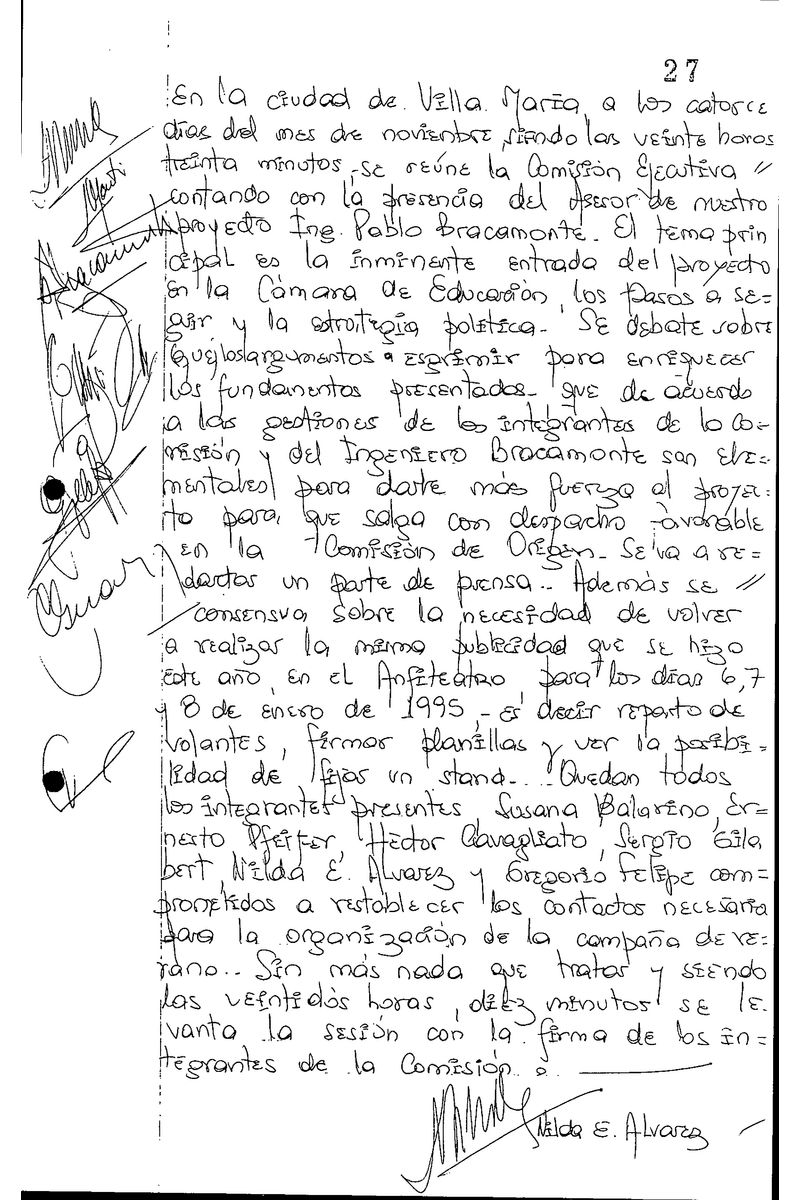 27
En la ciudad de Villa María, a los catorce
días del mes de noviembre, siendo las veinte horas
treinta minutos, se reúne la Comisión Ejecutiva //
contando con la presencia del Asesor de nuestro
proyecto Ing. Pablo Bracamonte. El tema prin
cipal es la inminente entrada del proyecto
en la Cámara de Educación, los pasos a se=
guir y la estrategia política. Se debate sobre
qué los argumentos a esgrimir para enriquecer
los fundamentos presentados. que de acuerdo
a las gestiones de los integrantes de la Co=
misión y del Ingeniero Bracamonte son ele=
mentales para darle más fuerza al proyec=
to para que salga con despacho favorable
en la Comisión de Origen. Se va a re=
dactar un parte de prensa.. Además se //
consensua sobre la necesidad de volver
a realizar la misma publicidad que se hizo
este año, en el Anfiteatro para los días 6,7
y 8 de enero de 1995, es decir reparto de
volantes, firmar planillas y ver la posibi=
lidad de fijar un stand... Quedan todos
los integrantes presentes, Susana Balarino, Er=
nesto Pfeiffer, Héctor Cavagliato, Sergio Gila
bert, Nilda E. Alvarez y Gregorio Felipe com=
prometidos a restablecer los contactos necesaria
para la organización de la campaña de ve=
rano.. Sin más nada que tratar y siendo
las veintidós horas, diez minutos se le=
vanta la sesión con la firma de los in=
tegrantes de la Comisión.
Nilda E. Alvarez